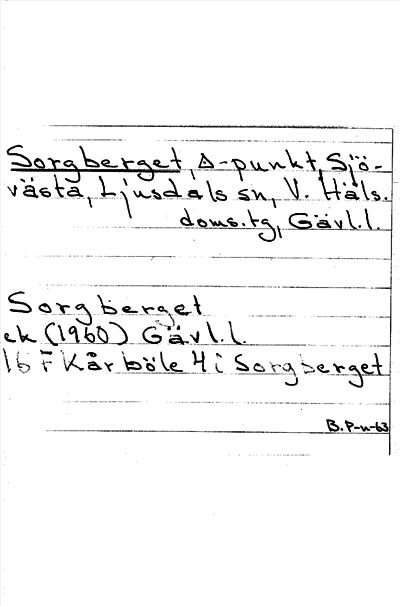 Sorgberget, Δ-punkt, Sjö-
västa, Ljusdals sn, V. Häls.
doms.tg, Gävl.l.
Sorgberget
ek (1960) Gävl.l.
16 F Kårböle 4 i Sorgberget
B.P-n-63